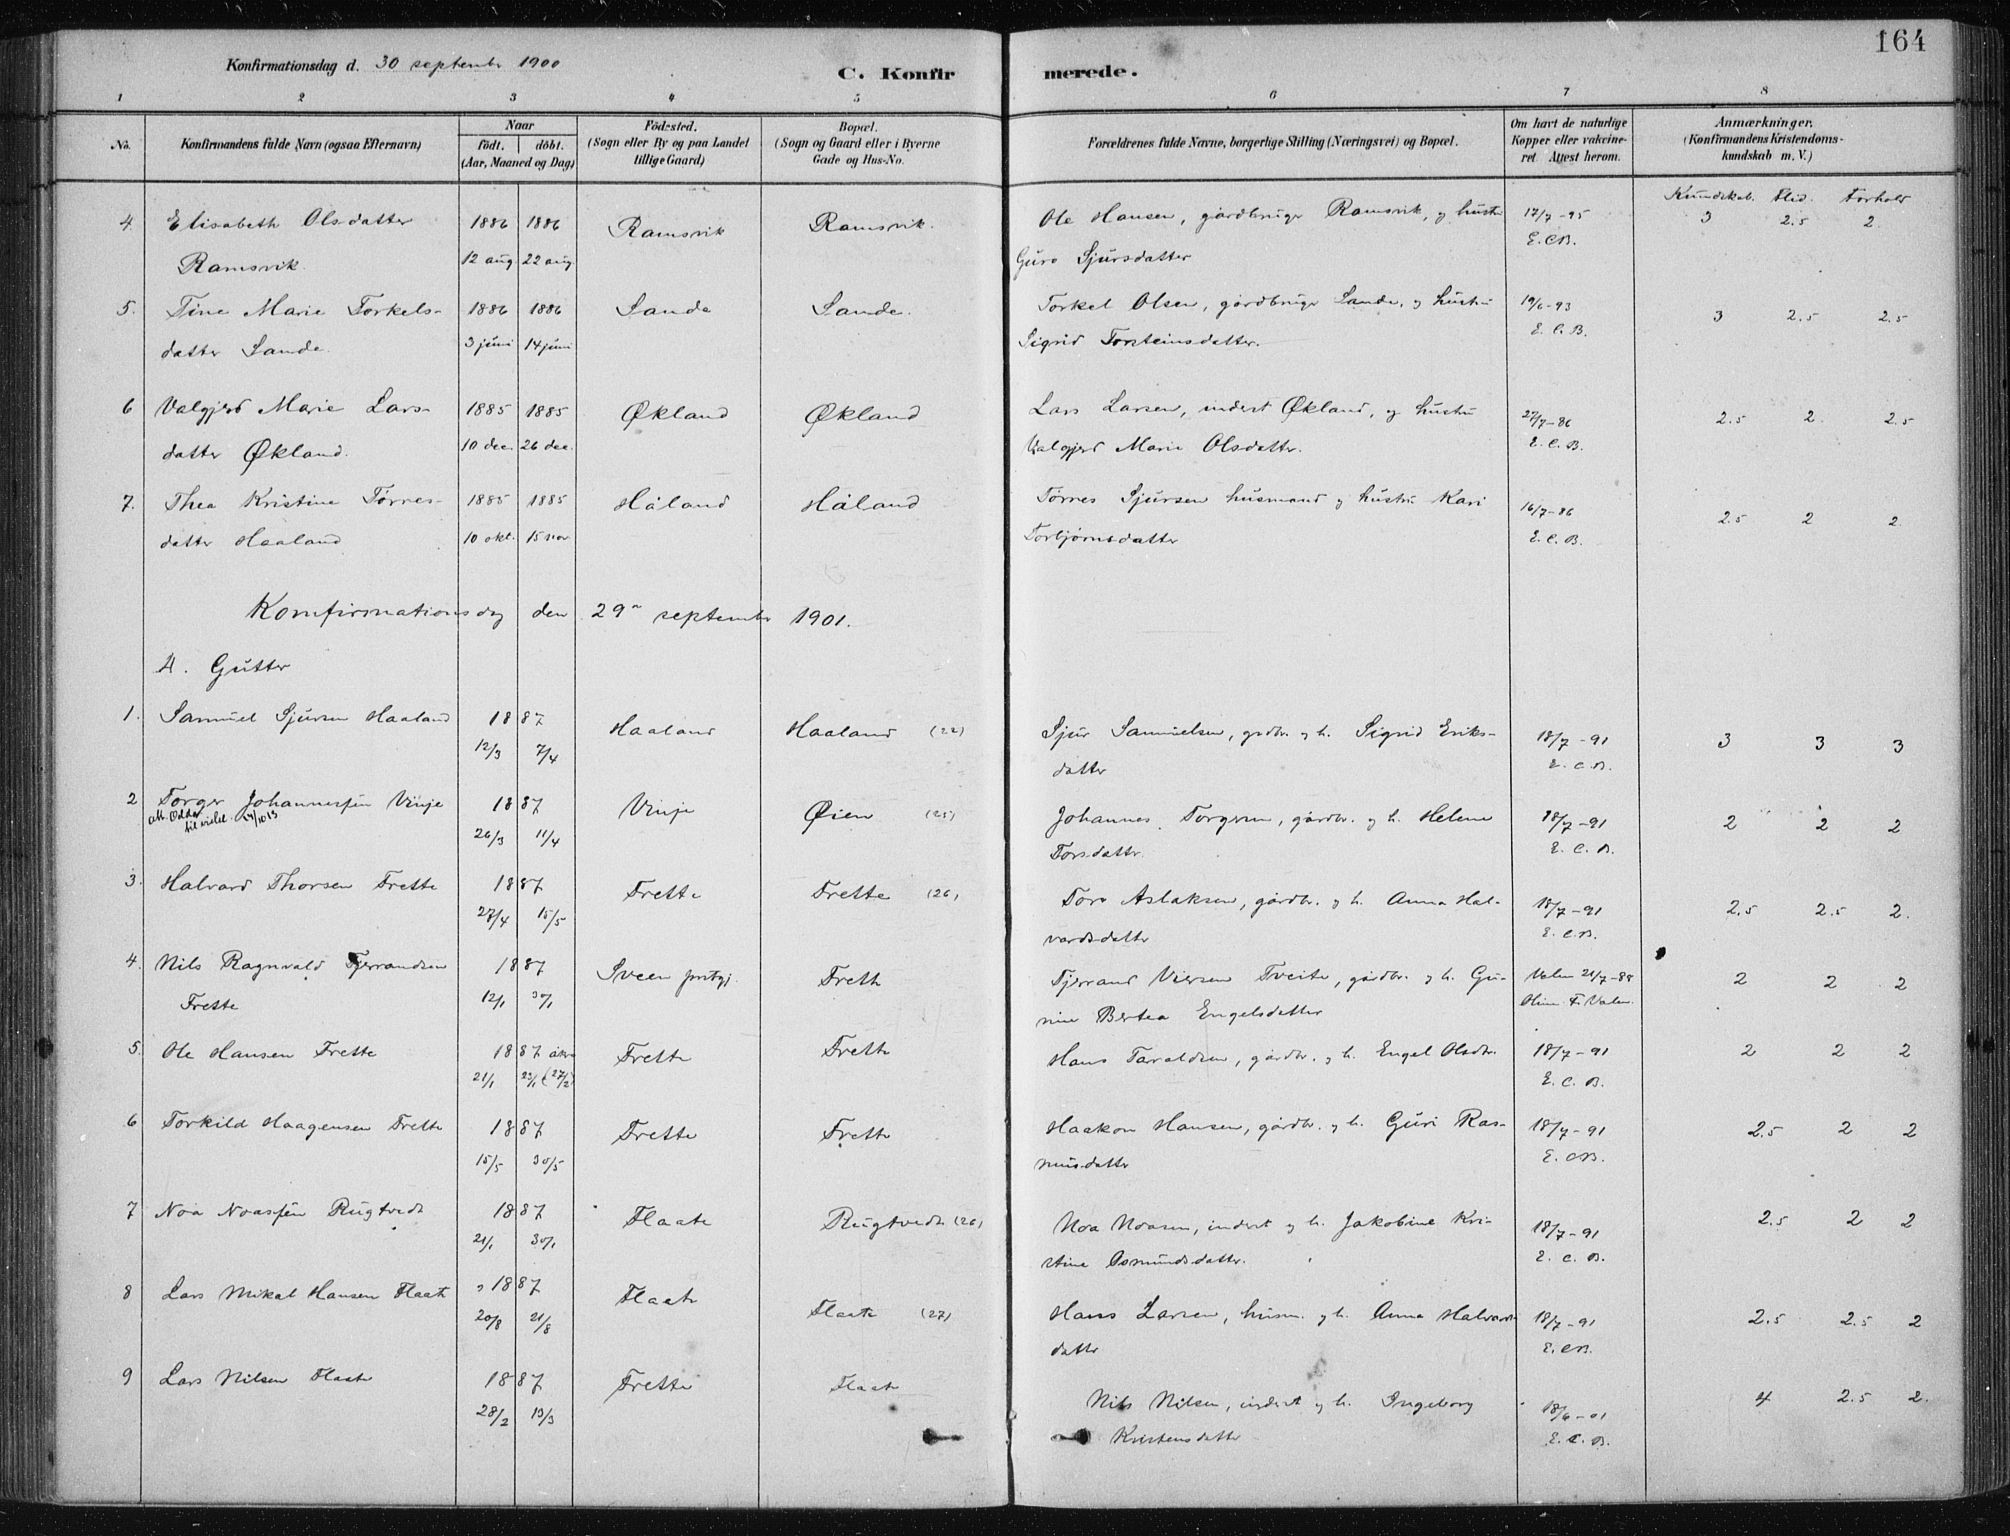 164
Konfirmationsdag d. 30 september 1900
C. Konfirmerede.
1 2 3 4 5 6 7 8
No. Konfirmandens fulde Navn (ogsaa Efternavn) Naar født. døbt. (Aar, Maaned og Dag) Fødested. (Sogn eller By og paa Landet tillige Gaard) Bopæl. (Sogn og Gaard eller i Byerne Gade og Hus-No. Forældrenes fulde Navne, borgerlige Stilling (Næringsvei) og Bopæl. Om havt de naturlige Kopper eller vakcineret. Attest herom. Anmærkninger. (Konfirmandens Kristendomskundskab m. V.)
Kundskab. Flid. Forhold
4 Elisabeth Olsdatter 1886 1886 Ramsvik Ramsvik. Ole Hansen, gårdbruger Ramsvik, og hustru 17/7-95 3 2.5 2
Ramsvik. 12 aug. 22 aug Guro Sjursdatter E.C.B.
5. Tine Marie Torkels- 1886 1886 Sande Sande. Torkel Olsen, gårdbruger Sande, og hustru 19/6-93 3 2.5 2.5
datter Sande. 3 juni 14 juni Sigrid Torsteinsdatter. E.C.B.
6 Valgjerd Marie Lars- 1885 1885 Økland Økland Lars Larsen, inderst Økland, og hustru 27/7-86 2.5 2. 2.5
datter Økland. 10 dec. 26 dec. Valgjerd Marie Olsdatter. E.C.B.
7. Thea Kristine Tørres- 1885 1885 Håland Håland Tørres Sjursen husmand og hustru Kari 16/7-86 2.5 2 2
datter Haaland 10 okt. 15 nov Torbjørnsdatter E.C.B.
Konfirmationsdag den 29n september 1901.
A. Gutter
1. Samuel Sjursen Haaland 1887 Haaland Haaland (22) Sjur Samuelsen, grdbr. og h. Sigrid Eriks- 18/7-91 3 3 3
12/3 7/4 datter E.C.B.
2 Torger Johannessen Vinje 1887 Vinje Øien (25) Johannes Torgersen, gårdbr. og h. Helene 18/7-91 2 2 2
att. Odda til viel. 24/10 13 26/3 11/4 Torsdattr. E.C.B.
3. Halvard Thorsen Frette 1887 Frette Frette (26) Tore Aslaksen, gårdbr. og h. Anna Hal- 18/7-91 2.5 2.5 2.
27/4 15/5 vardsdatter E.C.B.
4. Nils Ragnvald Tjerrandsen 1887 Sveen prstgj. Frette Tjerrand Tveite, gårdbr. og h. Gu- Valen 21/7-88 2 2 2
Frette 12/1 30/1 nine Bertea Engelsdatter F. Valen.
5. Ole Hansen Frette 1887 Frette Frette Hans Taraldsen, gårdbr. og h. Engel Olsdtr. 18/7-91 2 2 2
21/1 23/1 (27/2) E.C.B.
6 Torkild Haagensen Frette 1887 Frette Frette Haakon Hansen, gårdbr. og h. Guri Ras- 18/7-91 2.5 2 2
15/5 30/5 musdatter E.C.B.
7 Noa Noassen Rugtvedt 1887 Flaate Rugtvedt (26) Noa Noasen, inderst og h. Jakobine Kri- 18/7-91 2.5 2 2
21/1 30/1 stine Osmundsdatter. E.C.B.
8 Lars Mikal Hansen Flaate 1887 Flaate Flaate (27) Hans Larsen, husm. og h. Anna Halvards- 18/7-91 2.5 2.5 2
20/8 21/8 datter E.C.B.
9 Lars Nilsen Flaate 1887 Frette Flaate Nils Nilsen, inderst og h. Ingeborg 18/6-01 4 2.5 2.
28/2 13/3 Kristensdatter E.C.B.